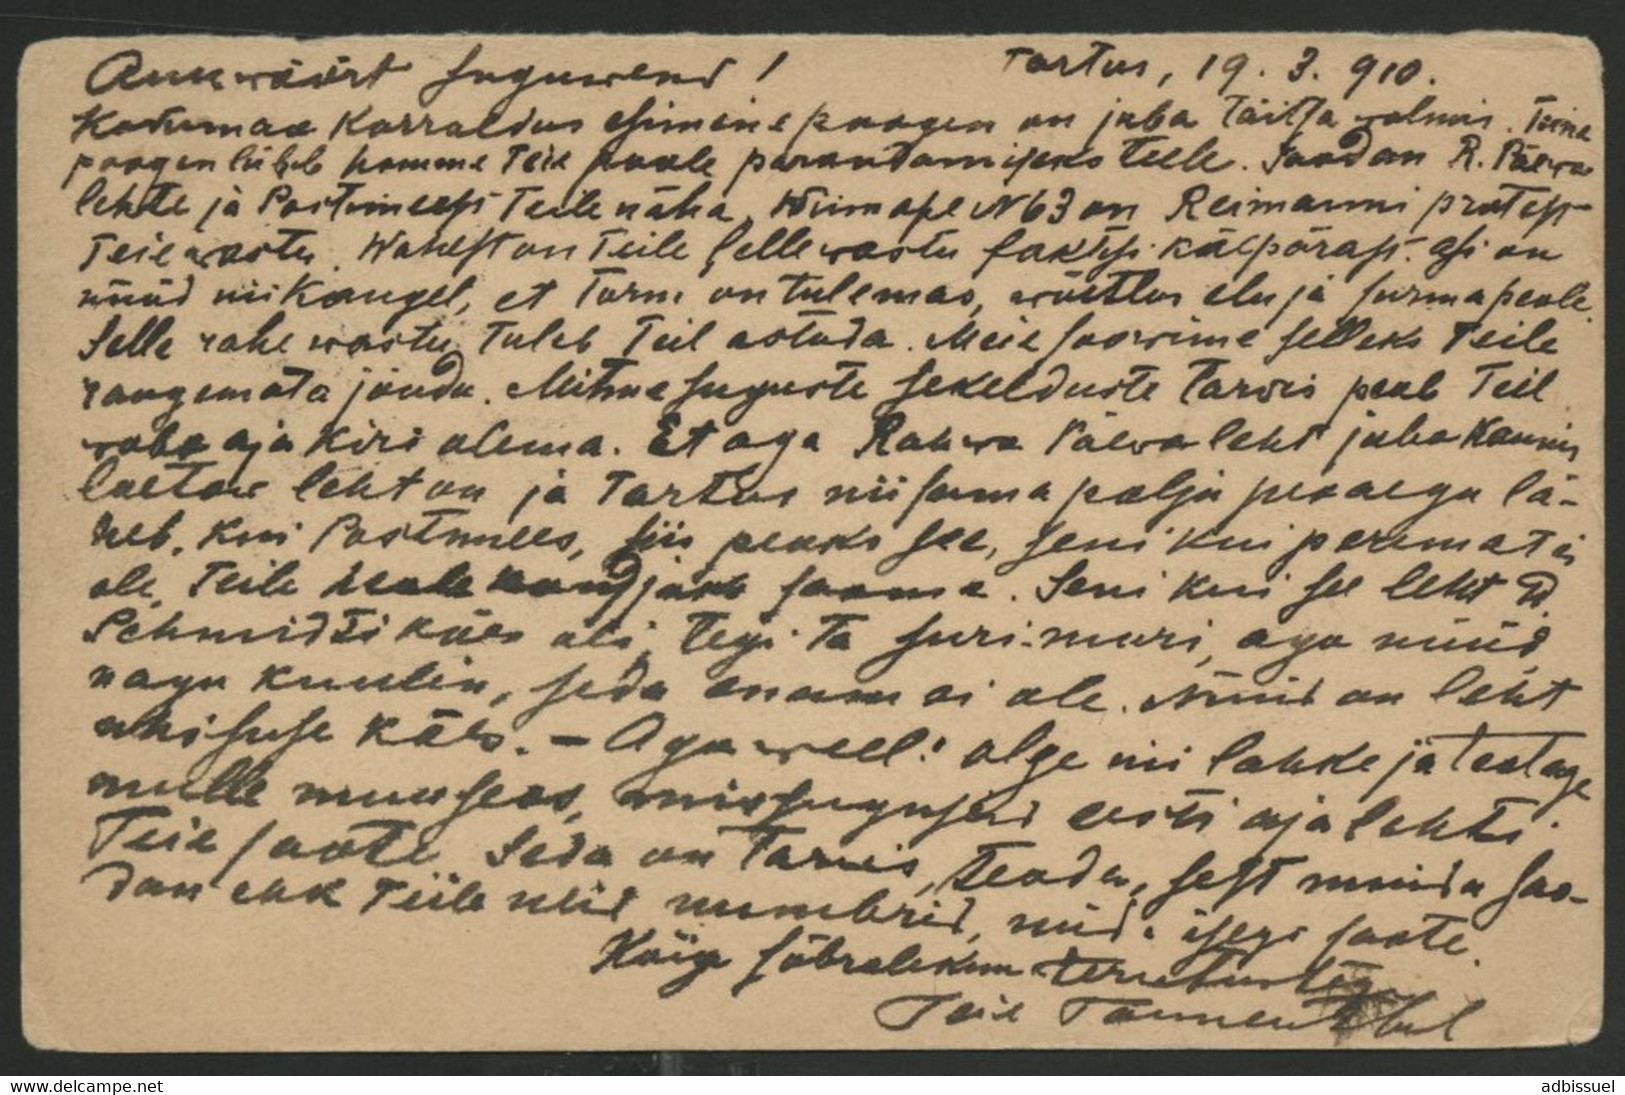 Auuwäärt suguwend! Tartus, 19. 3. 910.
Kodumaa Korraldus esimene poogen on juba täitsa walmis. Teine
poogen läheb homme Teie poole parandamiseks teele. Saadan R. Päewa
lehte ja Postimeest Teile näha, Wiimase N 63 on Reimanni protest
Teie wastu. Wahest on Teile selle wastu faktisi käepärast. Asi on
nüüd nii kaugel, et Torm on tulemas, wõitlus elu ja surma peale.
Selle rahe wastu tuleb Teil astuda. Meie soowime selleks Teile
raugemata jõudu. Mitmesuguste sekelduste tarwis peab Teil
waba ajakiri olema. Et aga Rahwa Päewaleht juba kaunis
loetaw leht on ja Tartus niisama palju peaaegu lä-
heb, kui Postimees, siis peaks see, seni kui paremat ei
ole, Teile saama. Seni kui see leht
Schmidti käes oli, tegi ta suri-muri, aga nüüd,
nagu kuulen, seda enam ei ole. Nüüd on leht
ühisuse käes. — Aga weel! olge nii lahke ja teatage
mulle muuseas, missugusid eesti ajalehti
Teie saate. Seda on tarwis teada, sest muidu saa-
dan ehk Teile neid numbrid, mid isegi saate.
Kõige sõbralikum terwitustega
Teie